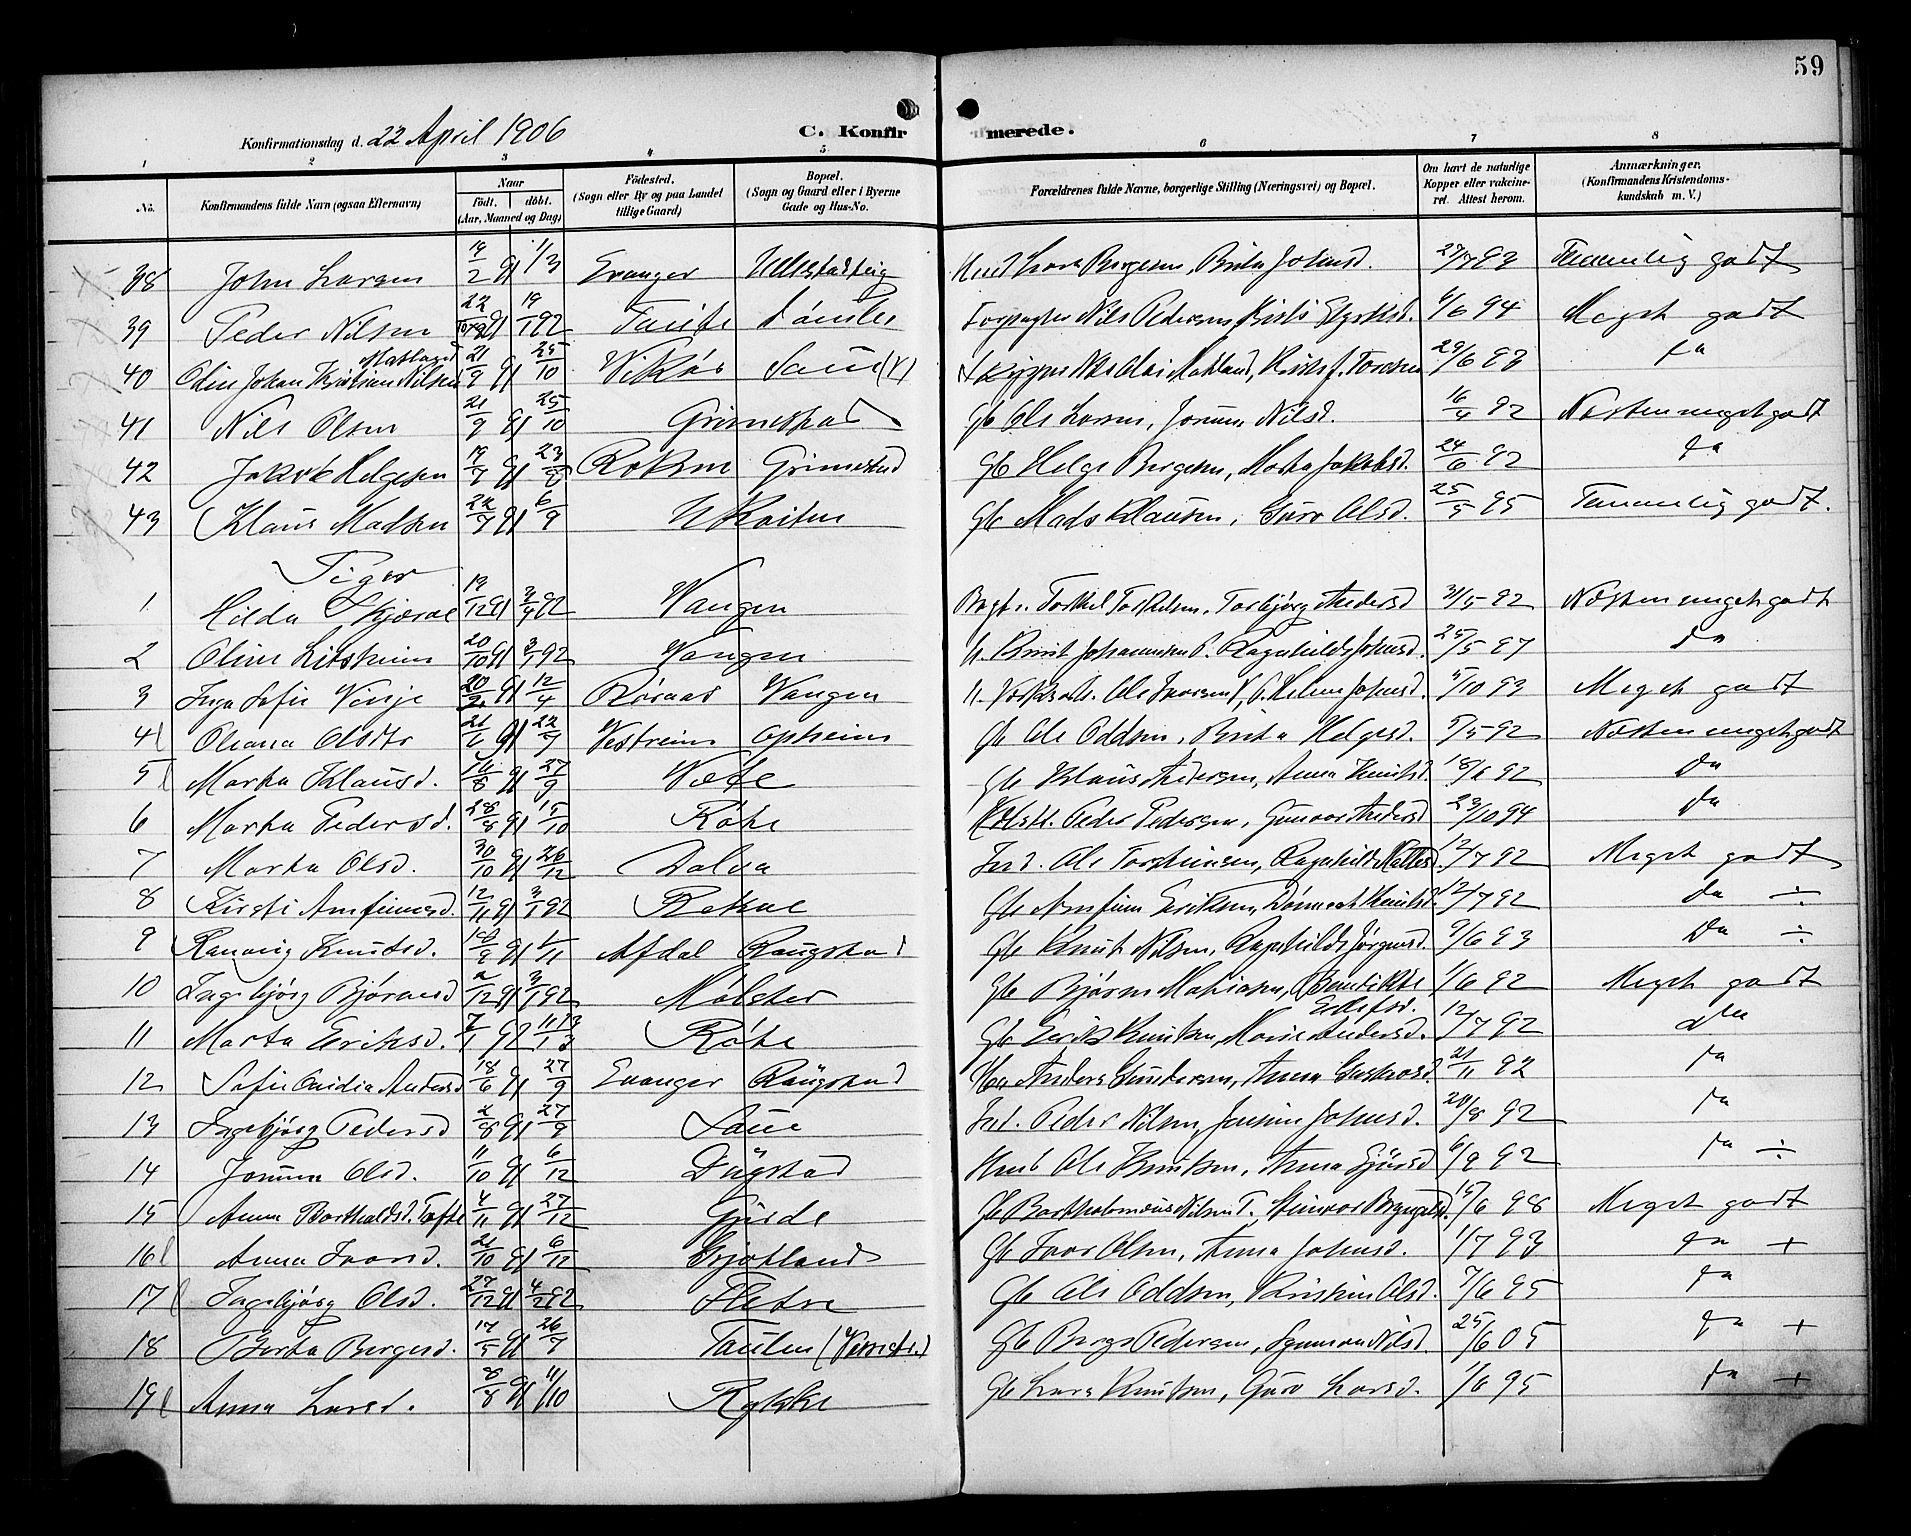 59
Konfirmationsdag d. 22 April 1906 C. Konfir merede.
1 2 3 4 5 6 7 8
No. Konfirmandens fulde Navn (ogsaa Efternavn) Naar födt. döbt. (Aar, Maaned og Dag) Födested. (Sogn eller By og paa Landet tillige Gaard) Bopæl. (Sogn og Gaard eller i Byerne Gade og Hus-No. Forældrenes fulde Navne, borgerlige Stilling (Næringsvei) og Bopæl. Om havt de naturlige Kopper eller vakcineret. Attest herom. Anmærkninger. (Konfirmandens Kristendomskundskab m. V.)
38 John Larsen 2 91 1/3 Evanger Lars Bergesen, Brita Johnsd. Temmelig godt
39 Peder Nilsen 22/10 91 92 Nils Pedersen, Kirsti 1/6 94 Meget godt
40 Olin Johan Kristian Nilsen Matland 21/9 91 25/10 Vikør Saue (V) Matland, 29/6 93 da
41 Nils Olsen 21/9 91 25/10 Grimestad Gb Ole Larsen, Jorunn Nilsd. 16/4 92 Næsten meget godt
42 Jakob Helgesen 19/7 91 23/8 Grimestad Gb Helge Bergesen, Marta Jakobsd. 24/6 92 da
43 Klaus Madsen 22/7 91 6/9 Gb Mads Klausen, Guro Olsd. 25/5 95 Temmelig godt.
Piger
1 Hilda Skjerve 19/12 91 3/4 92 Vangen Torkel Torkelsen, Torbjørg Andersd 31/5 92 Næsten meget godt
2 Oline Litsheim 20/10 91 3/1 92 Vangen Knut Johannesen L. Ragnhild Johnsd. 25/5 97 da
3 Inga Sofie Vinje 20/2 91 12/4 Røraas Vangen Ole Ivarsen V, Helene Johnsd. 5/10 93 Meget godt
4 Oleana Olsdtr 21/6 91 22/7 Vestreim Opheim Gb Ole Oddsen, Brita Helgesd. 5/5 92 Næsten meget godt
5 Marta Klausd. 14/8 91 27/9 Væte Gb Klaus Andersen, Anna Knutsd. 18/6 92 da
6 Marta Pedersd. 28/8 91 15/10 Røte Peder Pedersen, Gunvor Andersd 23/10 94 da
7 Marta Olsd. 30/10 91 26/12 Dolva Ind. Ole Torsteinsen, Ragnhild 12/7 92 Meget godt
8 Kirsti Arnfinnsd. 12/11 91 3/1 92 Rekve Gb Arnfinn Eriksen, Knutsd. 12/7 92 da ÷
9 Ranveig Knutsd. 91 1/11 Afdal Raugstad Gb Knut Nilsen, Ragnhild Jørgensd. 9/6 93 Da ÷
10 Ingebjørg Bjørnsd 2/12 91 3/1 92 Mølster Gb Bjørn Mathiasen, Benedikte 1/6 92 Meget godt
11 Marta Eriksd. 7/1 92 Røte Gb Erik Knutsen, Marie Andersd. 12/7 92 da
12 Sofie Ovidia Andersd 18/6 91 27/9 Evanger Raugstad Anders Gundersen, Anna 21/11 92 da
13 Ingebjørg Pedersd 2/8 91 27/9 Saue Ind. Peder Nilsen, Johnsd. 20/8 92 da
14 Jorunn Olsd. 11/10 91 6/12 Dugstad Ole Knutsen, Anna Sjursd 6/9 92 da ÷
15 Anna Bartholdsd. Tøfte 4/11 91 27/12 Gjerde Gb Bartholomæus Nilsen T. 15/6 98 Meget godt
16 Anna Ivarsd. 21/10 91 6/12 Grjotland Gb Ivar Olsen, Anna Johnsd. 1/7 93 da +
17 Ingebjørg Olsd. 27/12 91 4/2 92 Fletre Gb Ole Oddsen, Kristine Olsd. 7/6 95 da
18 Berta Bergesd. 17/5 91 26/7 Gb Berge Pedersen, Synneva Nilsd. 25/6 05 da +
19 Anna Larsd. 8/8 91 11/10 Rykke Gb Lars Knutsen, Guro Larsd. 1/6 95 da +